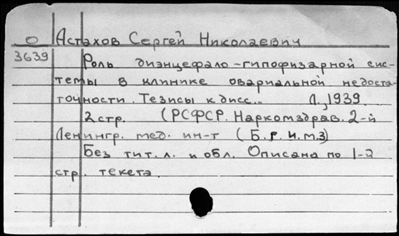 О Астахов Сергей Николаевич
3639 Роль диэнцефало-гипофизарной сис-
темы в клинике овариальной недоста-
точности. Тезисы к дисс... Л., 1939
2 стр. (РСФСР. Наркомздрав. 2-й
Ленингр. мед. ин-т (Б. г. и м.)
Без тит. л. и обл. Описана по 1-2
стр. текста.